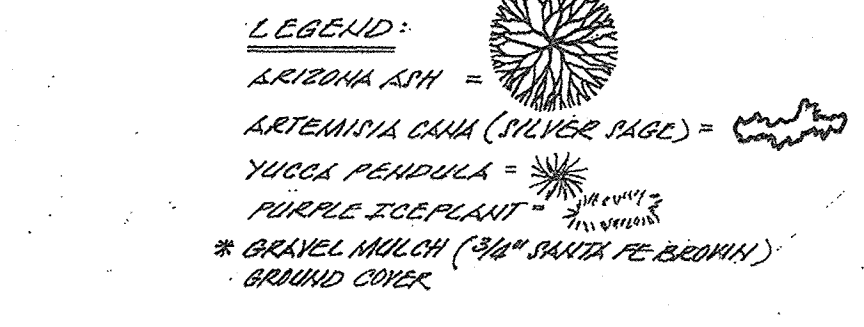 LEGEND:
ARIZONA ASH =
ARTEMISIA CANA (SILVER SAGE) =
YUCCA PENDULA =
PURPLE ICEPLANT =
* GRAVEL MULCH (3/4" SANTA FE BROWN)
GROUND COVER